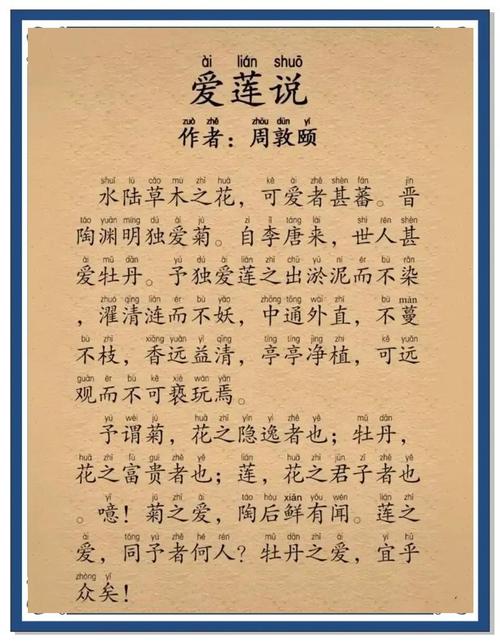 ài lián shuō
爱莲说
zuò zhě zhōu dūn yí
作者：周敦颐
shuǐ lù cǎo mù zhī huā kě ài zhě shèn fán jìn
水陆草木之花，可爱者甚蕃。晋
táo yuān míng dú ài jú zì lǐ táng lái shì rén shèn
陶渊明独爱菊。自李唐来，世人甚
ài mǔ dān yú dú ài lián zhī chū yū ní ér bù rǎn
爱牡丹。予独爱莲之出淤泥而不染
zhuó qīng lián ér bù yāo zhōng tōng wài zhí bù màn
，濯清涟而不妖，中通外直，不蔓
bù zhī xiāng yuǎn yì qīng tíng tíng jìng zhí kě yuǎn
不枝，香远益清，亭亭净植，可远
guān ér bù kě xiè wán yān
观而不可亵玩焉。
yú wèi jú huā zhī yǐn yì zhě yě mǔ dān
予谓菊，花之隐逸者也；牡丹，
huā zhī fù guì zhě yě lián huā zhī jūn zǐ zhě yě
花之富贵者也；莲，花之君子者也
yī jú zhī ài táo hòu xiǎn yǒu wén lián zhī
。噫！菊之爱，陶后鲜有闻。莲之
ài tóng yú zhě hé rén mǔ dān zhī ài yí hū
爱，同予者何人？牡丹之爱，宜乎
zhòng yǐ
众矣！